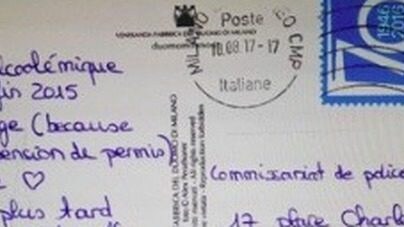 VENERANDA FABBRICA DEL DUOMO DI MILANO
duomomilano
Poste
MILANO
CMP
10.08.17-17
Italiane
1946
2016
lcoolémique
fin 2015
ge (because
pension de permis)
e ♡
plus tard
FABBRICA DEL DUOMO DI MILANO
All rights reserved
Reproduction forbidden
Commissariat de police
17 place Charle